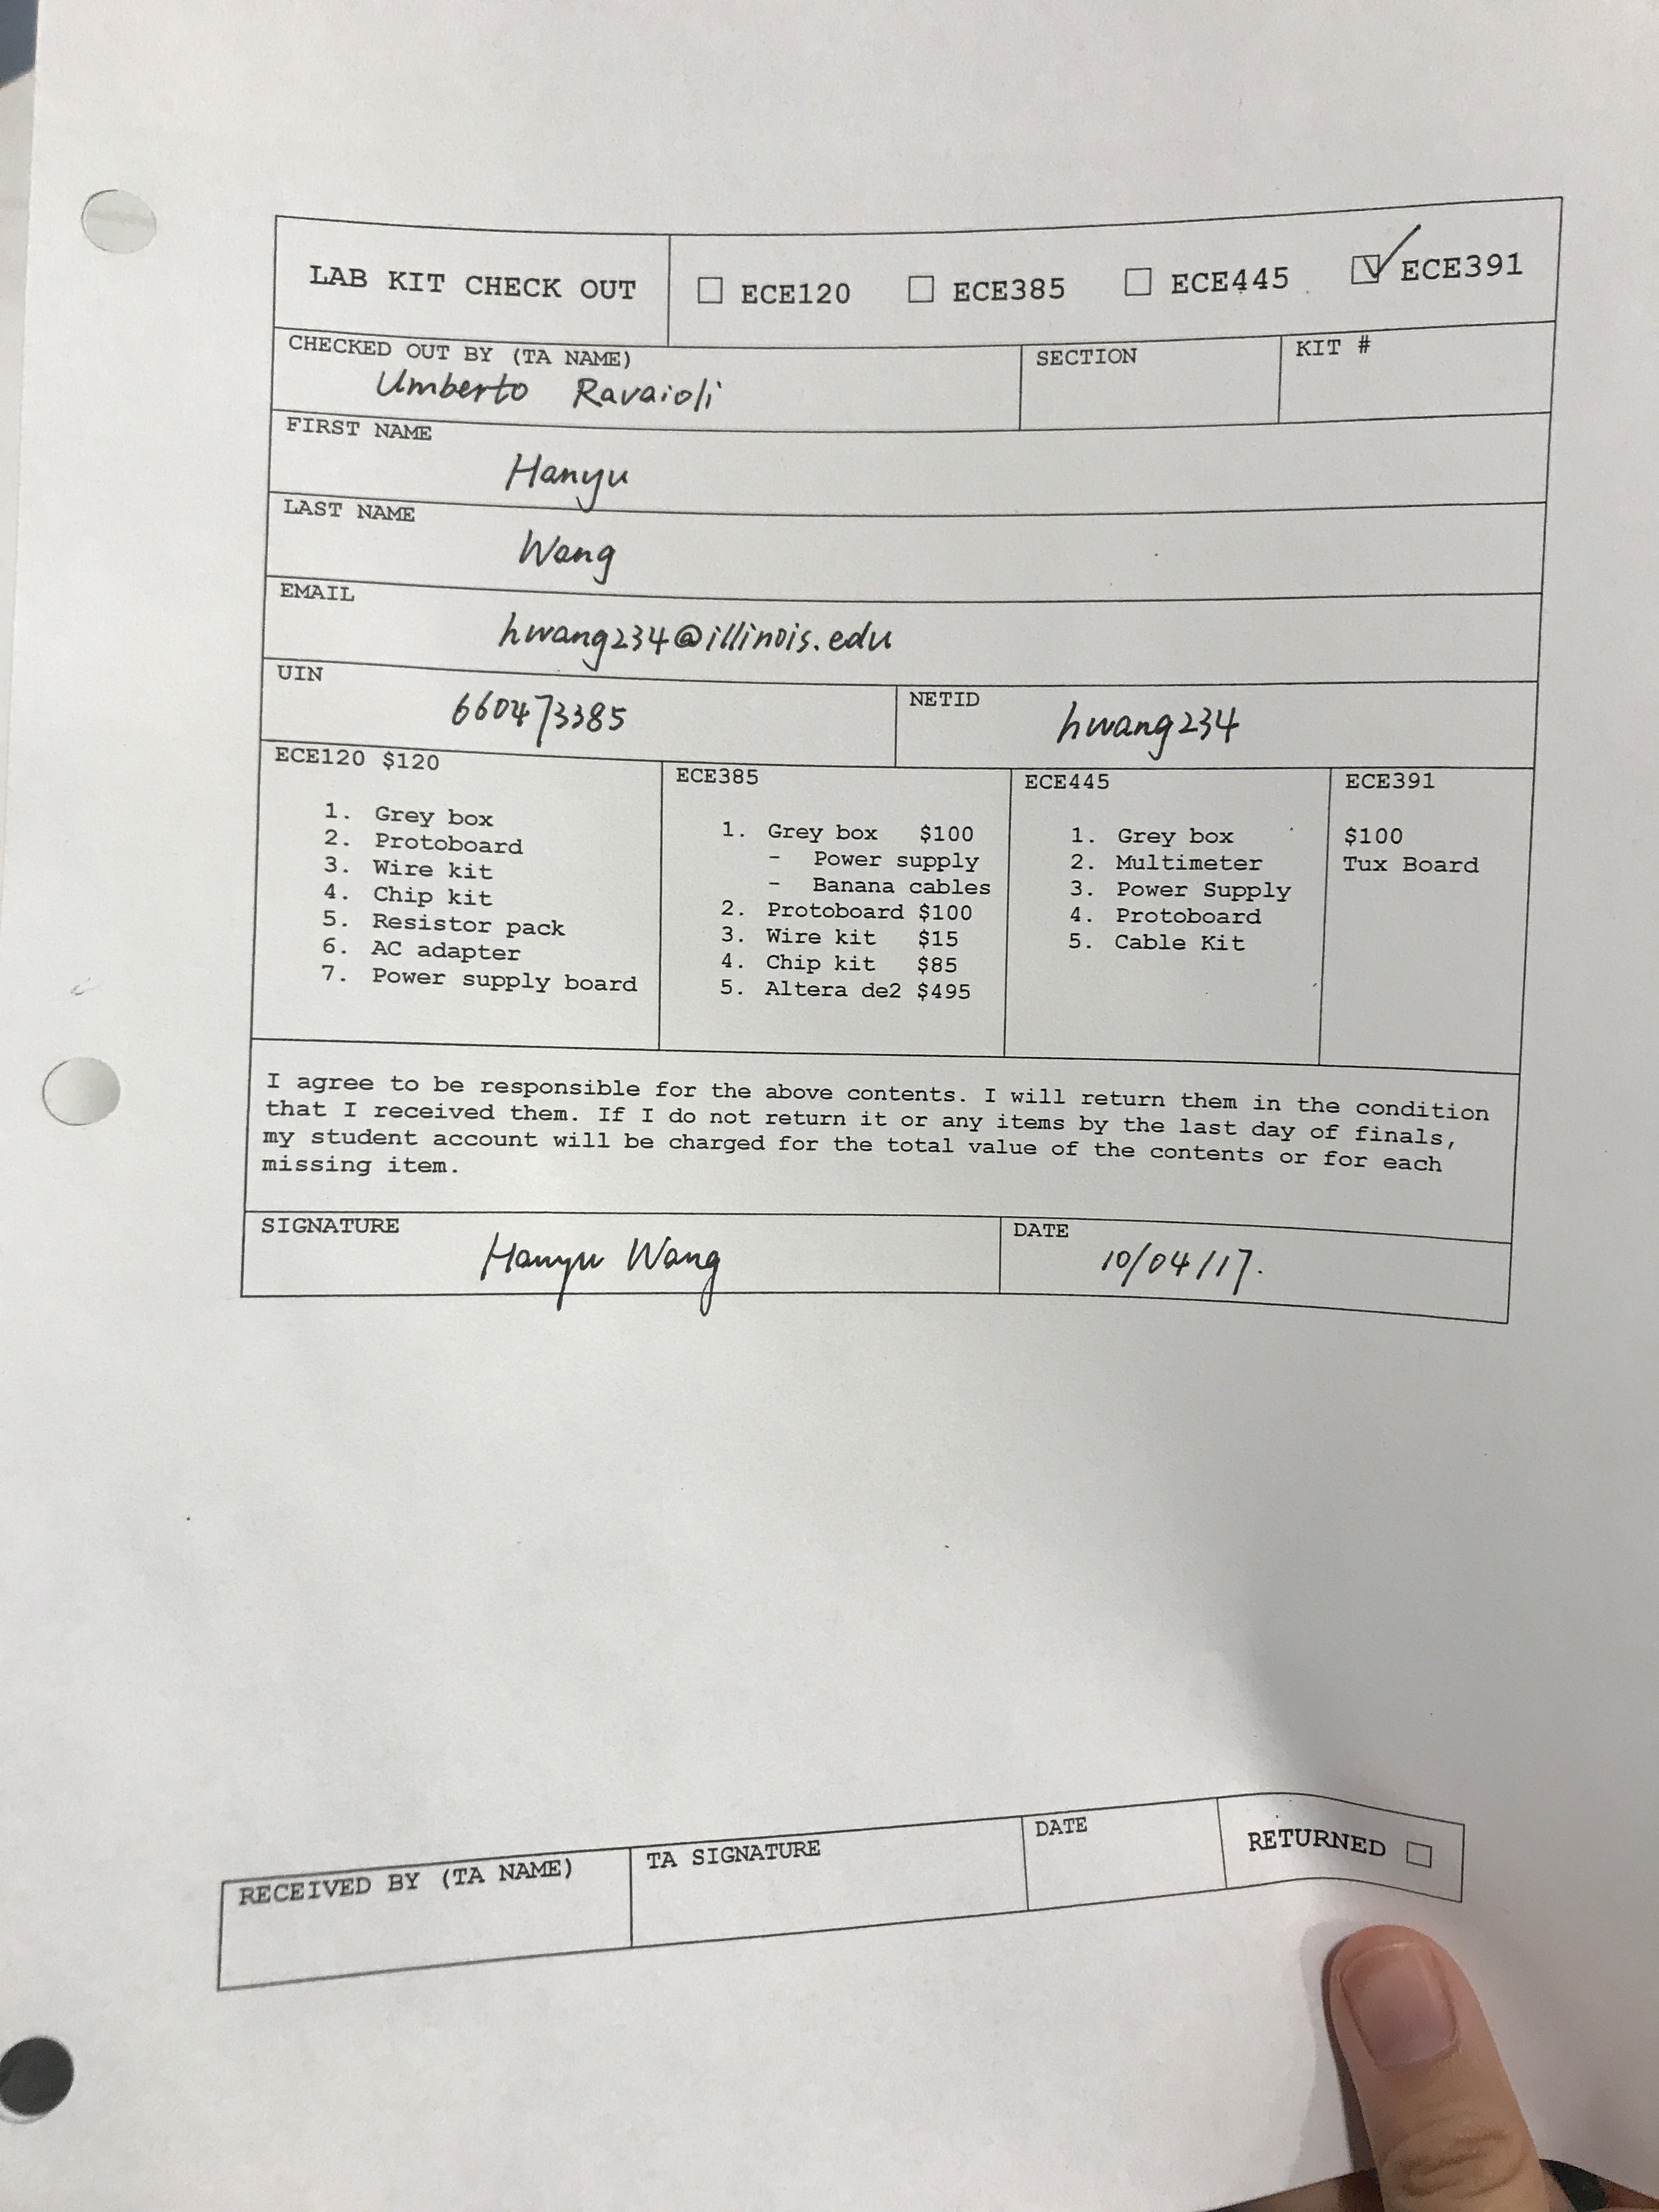 LAB KIT CHECK OUT ☐ ECE120 ☐ ECE385 ☐ ECE445 ☑ ECE391
CHECKED OUT BY (TA NAME) SECTION KIT #
Umberto Ravaioli
FIRST NAME
Hanyu
LAST NAME
Wang
EMAIL
hwang234@illinois.edu
UIN NETID
660473385 hwang234
ECE120 $120
1. Grey box
2. Protoboard
3. Wire kit
4. Chip kit
5. Resistor pack
6. AC adapter
7. Power supply board
ECE385
1. Grey box $100
- Power supply
- Banana cables
2. Protoboard $100
3. Wire kit $15
4. Chip kit $85
5. Altera de2 $495
ECE445
1. Grey box
2. Multimeter
3. Power Supply
4. Protoboard
5. Cable Kit
ECE391
$100
Tux Board
I agree to be responsible for the above contents. I will return them in the condition
that I received them. If I do not return it or any items by the last day of finals,
my student account will be charged for the total value of the contents or for each
missing item.
SIGNATURE DATE
Hanyu Wang 10/04/17.
RECEIVED BY (TA NAME) TA SIGNATURE DATE RETURNED ☐